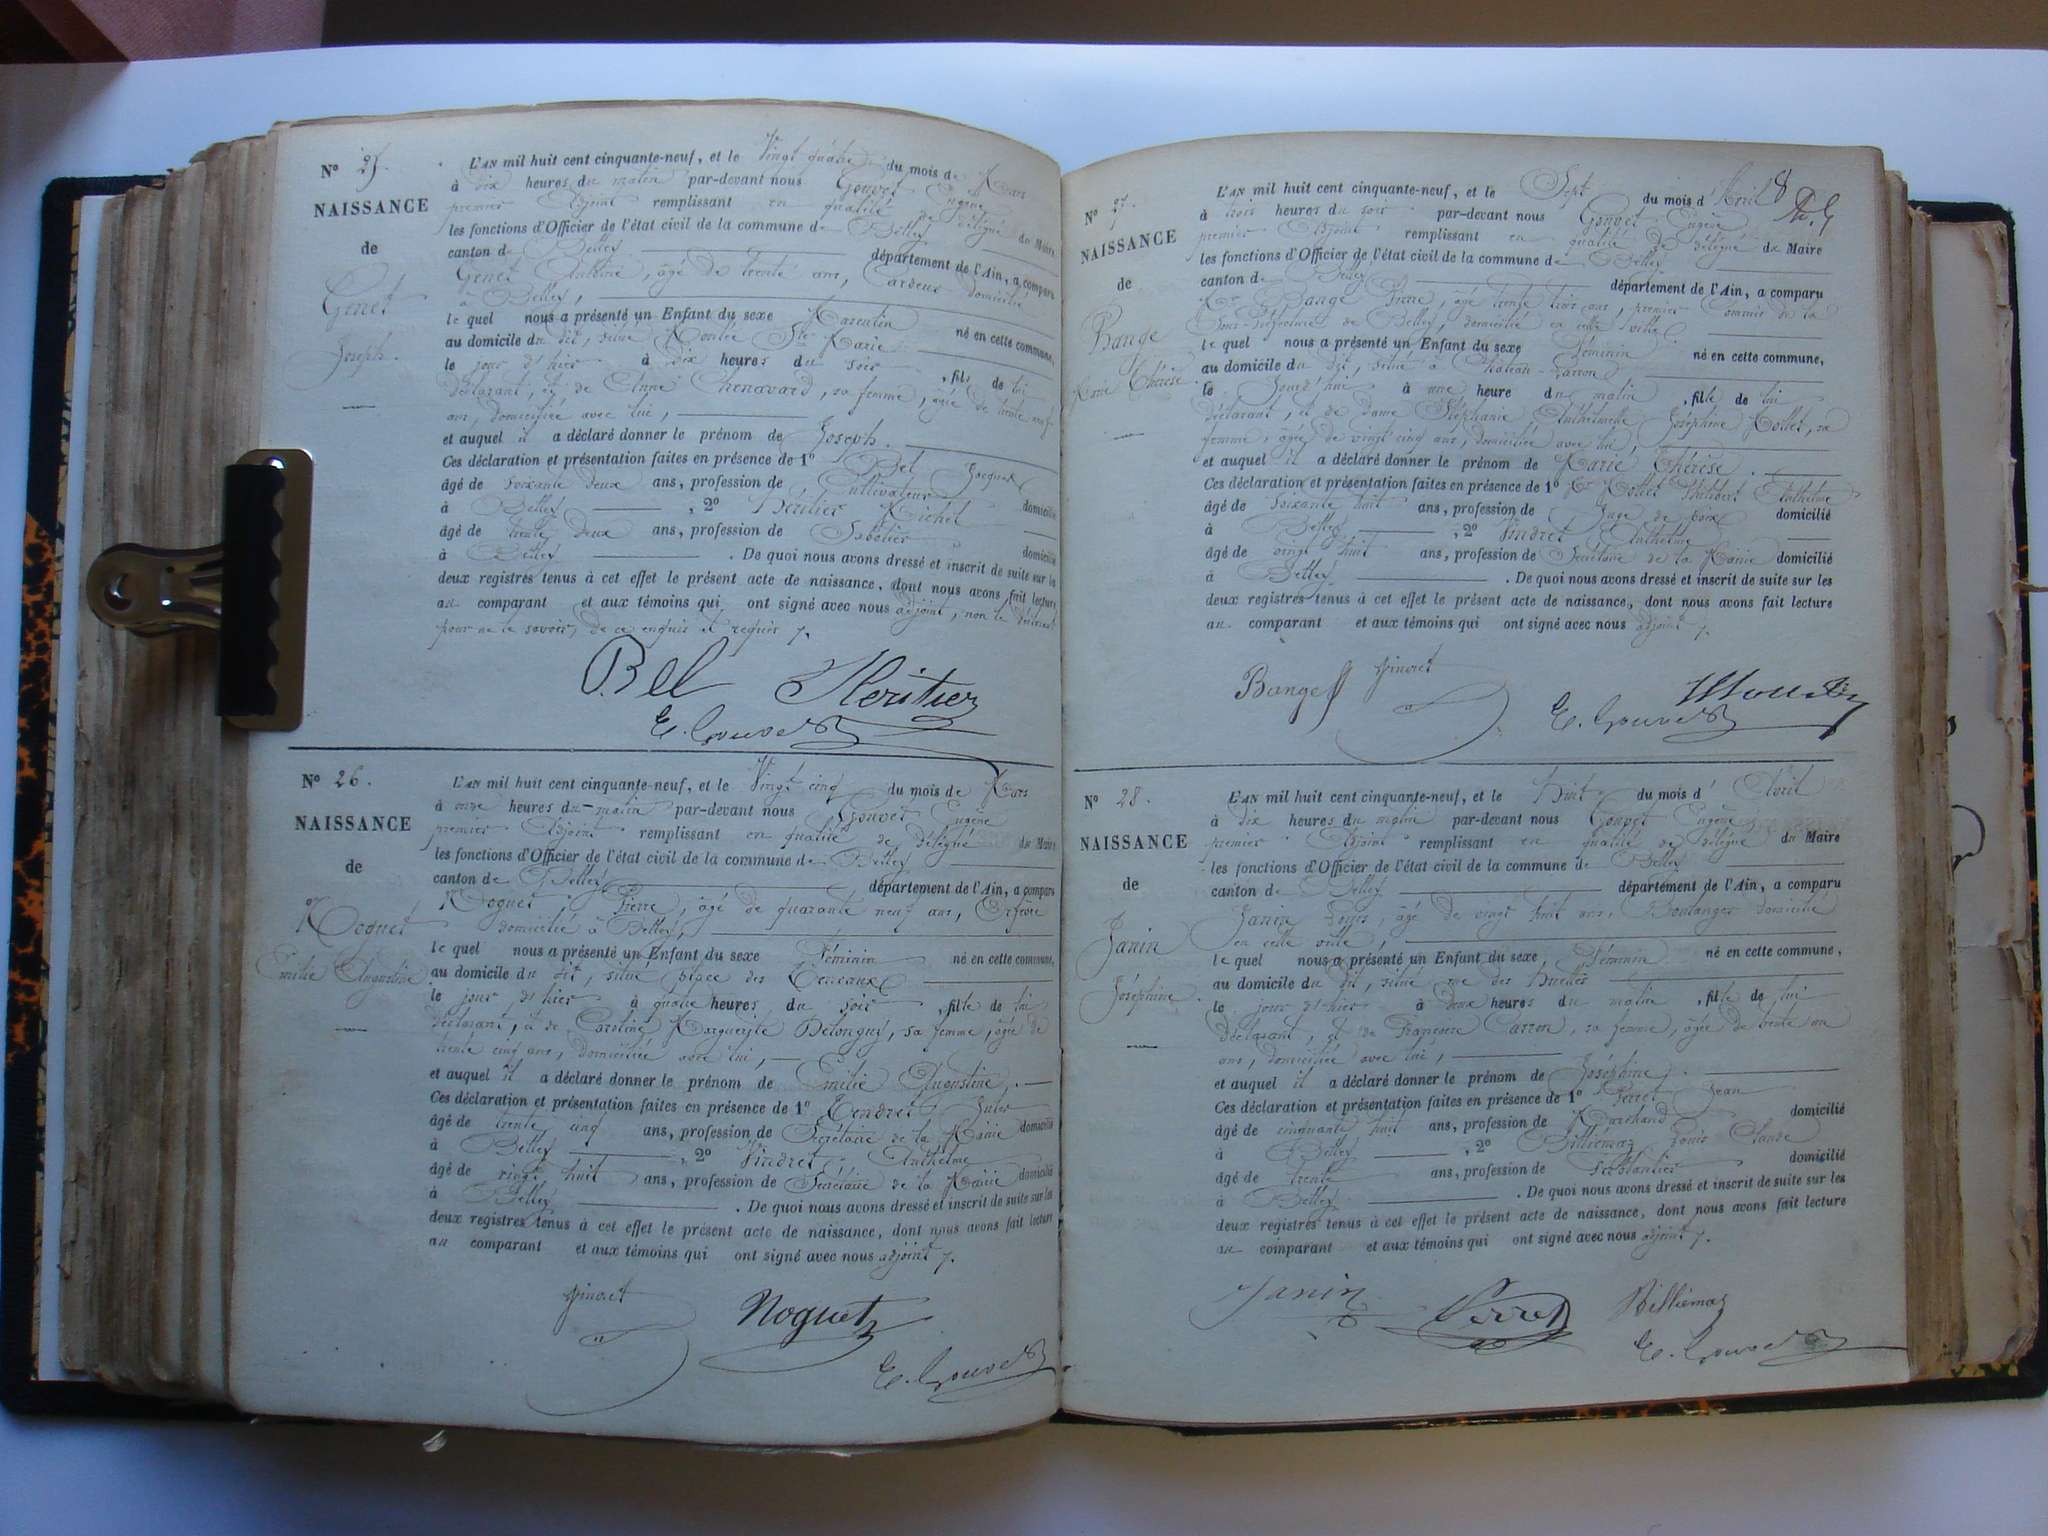 N° 25.
NAISSANCE
de
Genet
Joseph.
L'AN mil huit cent cinquante-neuf, et le Vingt quatre du mois de Mars
à dix heures du matin par-devant nous Gouvet Eugène
premier Adjoint remplissant en qualité de délégué du Maire
les fonctions d'Officier de l'état civil de la commune de Belley
canton de Belley département de l'Ain, a comparu
Genet Anthelme, âgé de trente ans, Cardeur domicilié
à Belley,
le quel nous a présenté un Enfant du sexe Masculin né en cette commune,
au domicile du dit, situé Montée Ste Marie
le jour d'hier à dix heures du soir, fils de lui
déclarant, et de Anne Chenavard, sa femme, âgée de trente neuf
ans, domiciliée avec lui,
et auquel il a déclaré donner le prénom de Joseph.
Ces déclaration et présentation faites en présence de 1° Bel Jacques
âgé de soixante deux ans, profession de Cultivateur domicilié
à Belley, 2° Héritier Michel
âgé de trente deux ans, profession de Sabotier domicilié
à Belley. De quoi nous avons dressé et inscrit de suite sur les
deux registres tenus à cet effet le présent acte de naissance, dont nous avons fait lecture
au comparant et aux témoins qui ont signé avec nous adjoint, non le déclarant
pour ne le savoir, de ce enquis et requis
Bel Heritier
E. Gouvet
N° 26.
NAISSANCE
de
Noguet
Emilie Augustine
L'AN mil huit cent cinquante-neuf, et le Vingt cinq du mois de Mars
à onze heures du matin par-devant nous Gouvet Eugène
premier Adjoint remplissant en qualité de délégué du Maire
les fonctions d'Officier de l'état civil de la commune de Belley
canton de Belley, département de l'Ain, a comparu
Noguet, Pierre, âgé de quarante neuf ans, Orfèvre
domicilié à Belley,
le quel nous a présenté un Enfant du sexe Féminin né en cette commune,
au domicile du dit, situé place des Terreaux
le jour d'hier à quatre heures du soir, fille de lui
déclarant, et de Caroline Marguerite, sa femme, âgée de
trente cinq ans, domiciliée avec lui,
et auquel il a déclaré donner le prénom de Emilie Augustine.
Ces déclaration et présentation faites en présence de 1° Jules
âgé de trente cinq ans, profession de Secrétaire de la Mairie domicilié
à Belley, 2° Vindret, Anthelme
âgé de vingt huit ans, profession de Secrétaire de la Mairie domicilié
à Belley. De quoi nous avons dressé et inscrit de suite sur les
deux registres tenus à cet effet le présent acte de naissance, dont nous avons fait lecture
au comparant et aux témoins qui ont signé avec nous adjoint
Vindret Noguet
E. Gouvet
8
N° 27.
NAISSANCE
de
Bange
Marie Thérèse
L'AN mil huit cent cinquante-neuf, et le Sept du mois d'Avril
à trois heures du soir par-devant nous Gouvet Eugène
premier Adjoint remplissant en qualité de délégué du Maire
les fonctions d'Officier de l'état civil de la commune de Belley
canton de Belley département de l'Ain, a comparu
Mr Bange Pierre, âgé trente trois ans, premier Commis de la
Sous-Préfecture de Belley, domicilié en cette ville
le quel nous a présenté un Enfant du sexe Féminin né en cette commune,
au domicile du dit, situé à
le Jourd'hui à une heure du matin, fille de lui
déclarant, et de Dame Stéphanie Anthelmette Joséphine Mollet, sa
femme, âgée de vingt cinq ans, domiciliée avec lui,
et auquel il a déclaré donner le prénom de Marie Thérèse.
Ces déclaration et présentation faites en présence de 1° Mr Mollet Philibert Anthelme
âgé de Soixante huit ans, profession de Juge de paix domicilié
à Belley, 2° Vindret Anthelme
âgé de vingt huit ans, profession de Secrétaire de la Mairie domicilié
à Belley. De quoi nous avons dressé et inscrit de suite sur les
deux registres tenus à cet effet le présent acte de naissance, dont nous avons fait lecture
au comparant et aux témoins qui ont signé avec nous adjoint
Bange Vindret
E. Gouvet
N° 28.
NAISSANCE
de
Janin
Joséphine.
L'AN mil huit cent cinquante-neuf, et le Huit du mois d'Avril
à dix heures du matin par-devant nous Gouvet Eugène
premier Adjoint remplissant en qualité de Délégué du Maire
les fonctions d'Officier de l'état civil de la commune de Belley
canton de Belley département de l'Ain, a comparu
Janin Louis, âgé de vingt huit ans, Boulanger domicilié
en cette ville,
le quel nous a présenté un Enfant du sexe Féminin né en cette commune,
au domicile du dit, situé rue des
le jour d'hier à deux heures du matin, fille de lui
déclarant, et de Françoise Carron, sa femme, âgée de trente un
ans, domiciliée avec lui,
et auquel il a déclaré donner le prénom de Joséphine.
Ces déclaration et présentation faites en présence de 1° Perret Jean
âgé de cinquante huit ans, profession de Marchand domicilié
à Belley, 2° Billiemaz Louis Claude
âgé de trente ans, profession de ferblantier domicilié
à Belley. De quoi nous avons dressé et inscrit de suite sur les
deux registres tenus à cet effet le présent acte de naissance, dont nous avons fait lecture
au comparant et aux témoins qui ont signé avec nous adjoint
Janin Perret Billiemaz
E. Gouvet